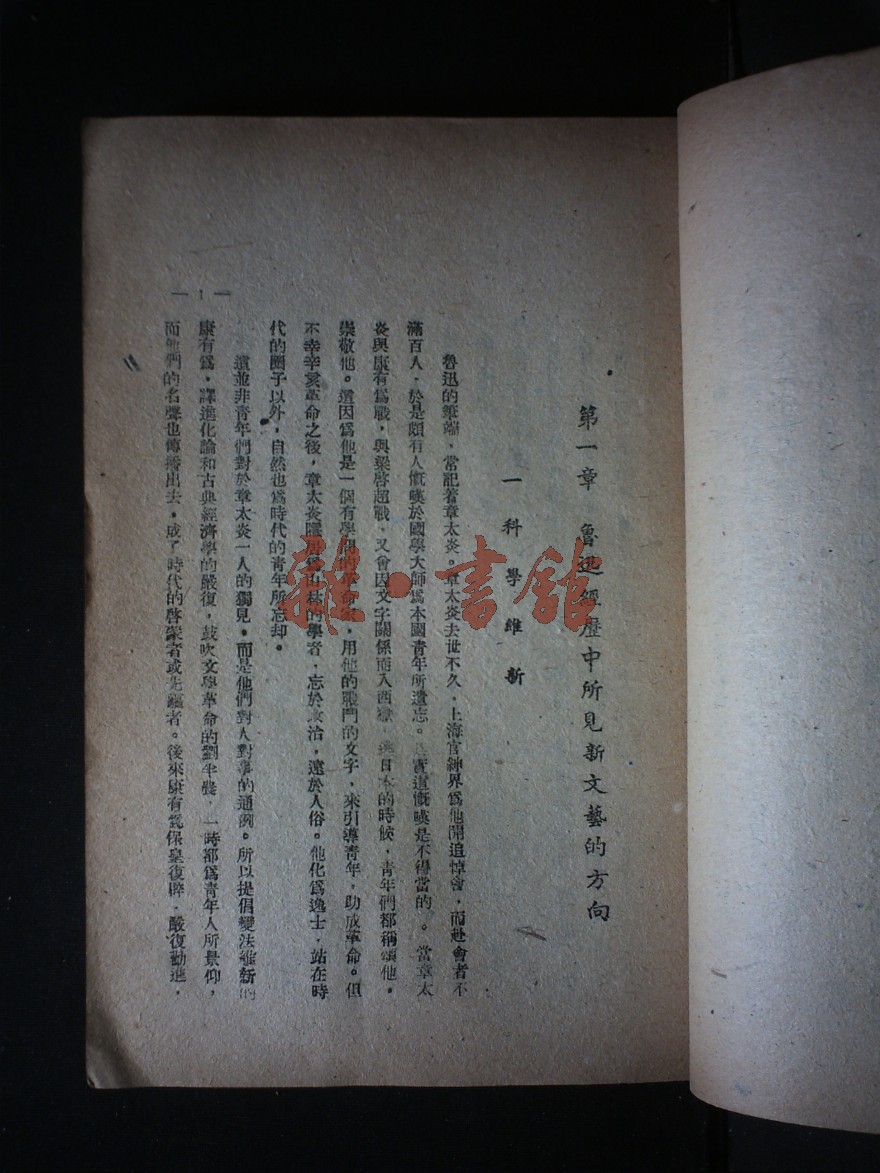 第一章 魯迅經歷中所見新文藝的方向
一 科學維新
魯迅的筆端,常記着章太炎。章太炎去世不久,上海官紳界爲他開追悼會,而赴會者不
滿百人,於是頗有人慨嘆於國學大師爲本國青年所遺忘。其實這慨嘆是不得當的。當章太
炎與康有爲戰,與梁啓超戰,又曾因文字關係而入西獄,與日本的時候,青年們都稱頌他,
崇敬他。這因爲他是一個有學問的革命家,用他的戰鬥的文字,來引導青年,助成革命。但
不幸辛亥革命之後,章太炎隱居爲山林的學者,忘於政治,遠於人俗。他化爲逸士,站在時
代的圈子以外,自然也爲時代的青年所忘却。
這並非青年們對於章太炎一人的獨見,而是他們對人對事的通例。所以提倡變法維新的
康有爲,譯進化論和古典經濟學的嚴復,鼓吹文學革命的劉半農,一時都爲青年人所景仰,
而他們的名聲也傳播出去,成了時代的啓蒙者或先驅者。後來康有爲保皇復辟,嚴復勸進,
— 1 —
雜·書館